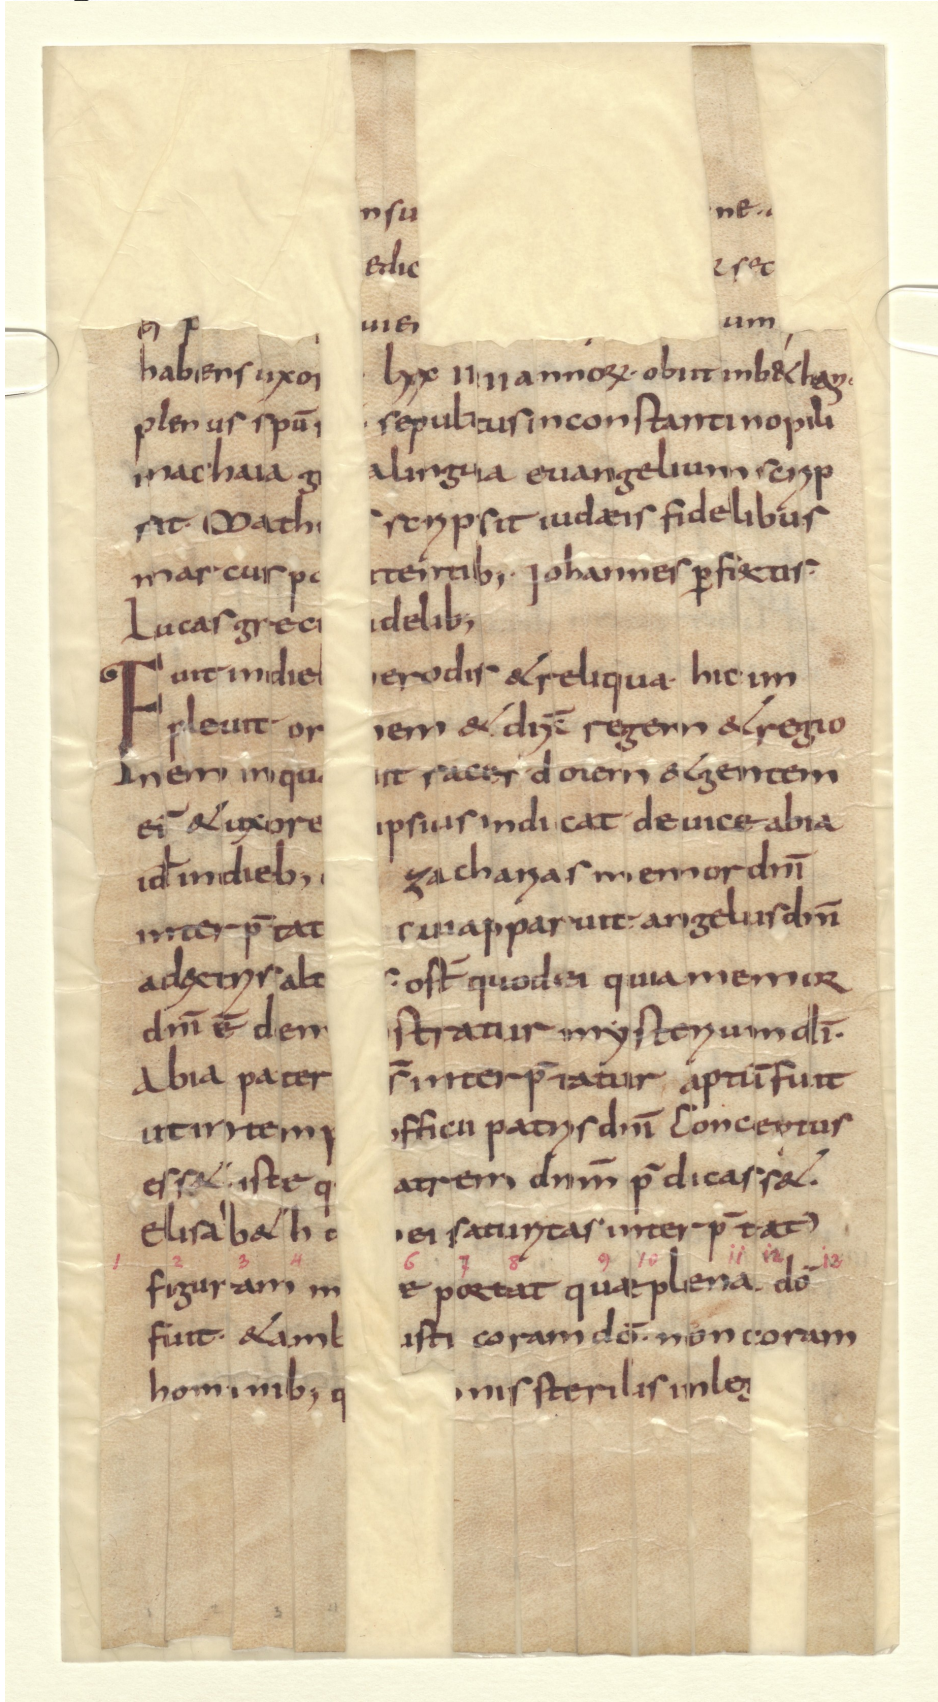 nsu ne
edic sec
uiei um
habens uxo lxx iiii annorum obiit in b&han
plenus spū sepultus in constantinopili
in achaia g a lingua euangelium scrip
sit. Math scripsit iudæis fidelibus
marcus p tentib; Johannes p̱fectis.
Lucas grec idelib;
Fuit in dieb erodis & reliqua hic im
pleuit or nem & dix̄ regem & regio
nem in qua it sacerdotem & gentem
ei & uxore ipsius indicat de uice abia
id in dieb; zacharias memor dn̄i
interp̄tat cui apparuit angelus dn̄i
adextris alt ost̄ quod ei quia memor
dn̄i ē dem stratur mysterium di.
Abia pater interp̄tatur aptū fuit
ut in temp officii patris dn̄i Conceptus
ess& iste q atrem dnm̄ p̄dicass&.
Elisab&h d ei saturitas interp̄tat
1 2 3 4 6 7 8 9 10 11 12 13
figuram in e portat quæ plena dō
fuit. & amb isti coram dō. non coram
hominib; q nis sterilis in leg